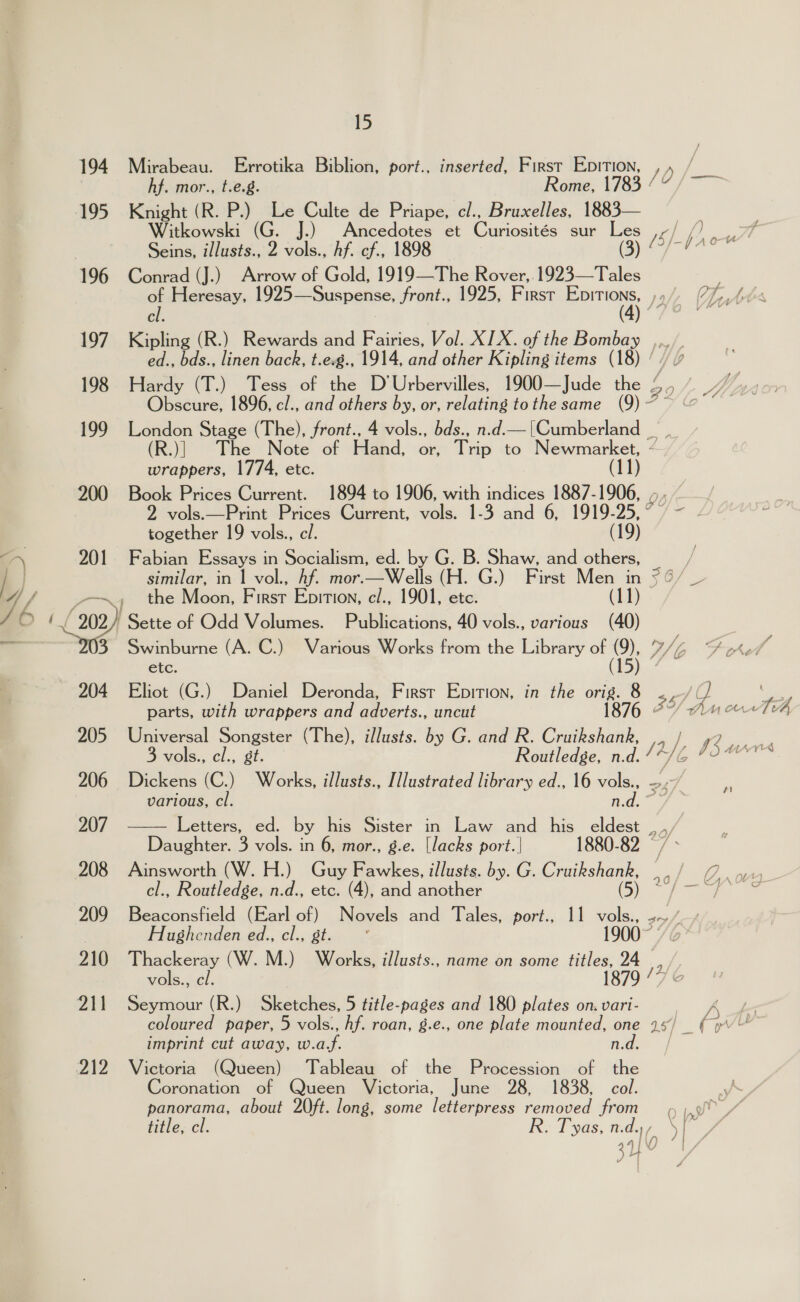 15
194 Mirabeau. Errotika Biblion, port., inserted, First Edition,
hf. mor., t.e.g. Rome, 1783
195 Knight (R. P.) Le Culte de Priape, cl., Bruxelles, 1883—
Witkowski (G. J.) Ancedotes et Curiosités sur Les
Seins, illusts., 2 vols., hf. cf., 1898 (3)
196 Conrad (J.) Arrow of Gold, 1919—The Rover, 1923—Tales
of Heresay, 1925—Suspense, front., 1925, First Editions,
cl. (4)
197 Kipling (R.) Rewards and Fairies, Vol. XIX. of the Bombay
ed., bds., linen back, t.e.g., 1914, and other Kipling items (18)
198 Hardy (T.) Tess of the D'Urbervilles, 1900—Jude the
Obscure, 1896, cl., and others by, or, relating to the same (9)
199 London Stage (The), front., 4 vols., bds., n.d.—[Cumberland
(R.)] The Note of Hand, or, Trip to Newmarket,
wrappers, 1774, etc. (11)
200 Book Prices Current. 1894 to 1906, with indices 1887-1906,
2 vols.—Print Prices Current, vols. 1-3 and 6, 1919-25,
together 19 vols., cl. (19)
201 Fabian Essays in Socialism, ed. by G. B. Shaw, and others,
similar, in 1 vol., hf. mor.—Wells (H. G.) First Men in
the Moon, First Edition, cl., 1901, etc. (11)
202 Sette of Odd Volumes. Publications, 40 vols., various (40)
203 Swinburne (A. C.) Various Works from the Library of (9), 7/6
etc. (15)
204 Eliot (G.) Daniel Deronda, First Edition, in the orig. 8
parts, with wrappers and adverts., uncut 1876
205 Universal Songster (The), illusts. by G. and R. Cruikshank,
3 vols., cl., gt. Routledge, n.d.
206 Dickens (C.) Works, illusts., Illustrated library ed., 16 vols.,
various, cl. n.d.
207 —— Letters, ed. by his Sister in Law and his eldest
Daughter. 3 vols. in 6, mor., g.e. [lacks port.] 1880-82
208 Ainsworth (W. H.) Guy Fawkes, illusts. by. G. Cruikshank,
cl., Routledge, n.d., etc. (4), and another (5)
209 Beaconsfield (Earl of) Novels and Tales, port., 11 vols.,
Hughenden ed., cl., gt. 1900
210 Thackeray (W. M.) Works, illusts., name on some titles, 24
vols., cl. 1879
211 Seymour (R.) Sketches, 5 title-pages and 180 plates on. vari-
coloured paper, 5 vols., hf. roan, g.e., one plate mounted, one
imprint cut away, w.a.f. n.d.
212 Victoria (Queen) Tableau of the Procession of the
Coronation of Queen Victoria, June 28, 1838, col.
panorama, about 20ft. long, some letterpress removed from
title, cl. R. Tyas, n.d.